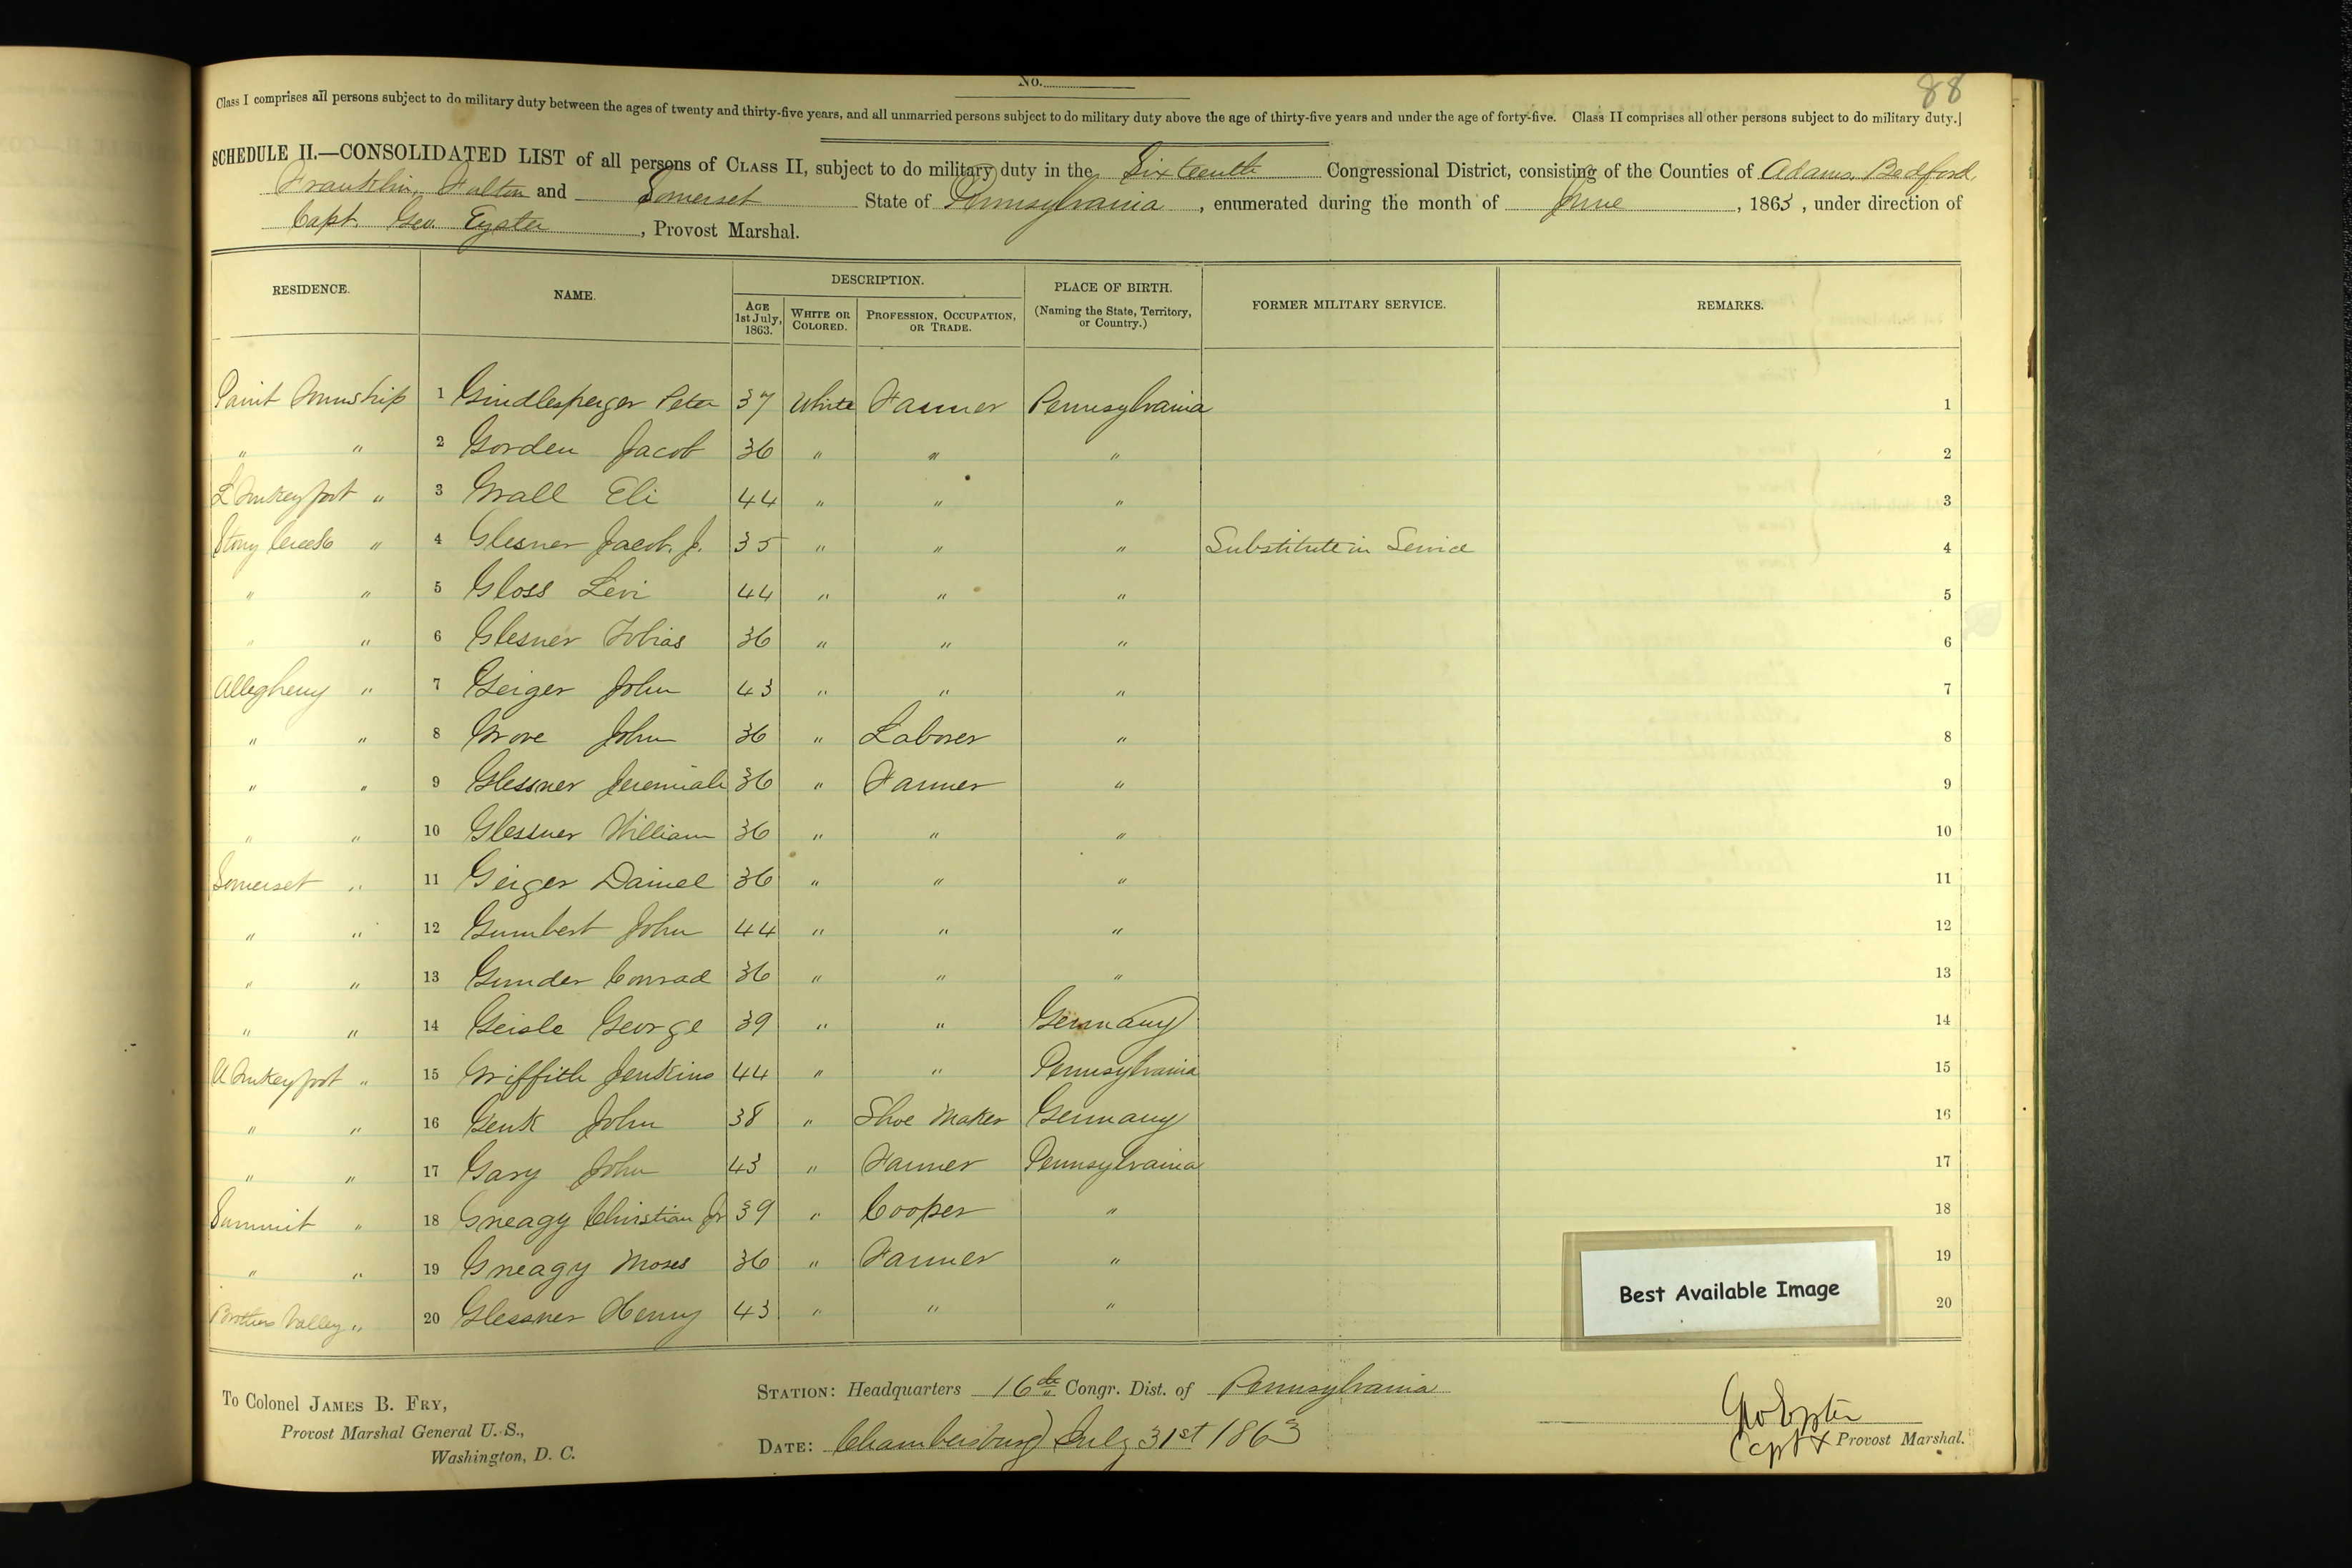 88
No.
Class I comprises all persons subject to do military duty between the ages of twenty and thirty-five years, and all unmarried persons subject to do military duty above the age of thirty-five years and under the age of forty-five. Class II comprises all other persons subject to do military duty.
SCHEDULE II.—CONSOLIDATED LIST of all persons of CLASS II, subject to do military duty in the Sixteenth Congressional District, consisting of the Counties of Adams, Bedford,
Franklin, Fulton and Somerset State of Pennsylvania, enumerated during the month of June, 1863, under direction of
Capt. Geo. Eyster, Provost Marshal.
RESIDENCE. NAME. DESCRIPTION. PLACE OF BIRTH. (Naming the State, Territory, or Country.) FORMER MILITARY SERVICE. REMARKS.
AGE 1st July, 1863. WHITE OR COLORED. PROFESSION, OCCUPATION, OR TRADE.
Paint Township 1 Gindlesperger Peter 37 White Farmer Pennsylvania 1
" " 2 Gorden Jacob 36 " " " 2
L Turkeyfoot " 3 Grall Eli 44 " " " 3
Stony Creek " 4 Glesner Jacob. J. 35 " " " Substitute in Service 4
" " 5 Gloss Levi 44 " " " 5
" " 6 Glesner Tobias 36 " " " 6
Allegheny " 7 Geiger John 43 " " " 7
" " 8 Grove John 36 " Laborer " 8
" " 9 Glessner Jeremiah 36 " Farmer " 9
" " 10 Glessner William 36 " " " 10
Somerset " 11 Geiger Daniel 36 " " " 11
" " 12 Gumbert John 44 " " " 12
" " 13 Gunder Conrad 36 " " " 13
" " 14 Geisle George 39 " " Germany 14
U Turkeyfoot " 15 Griffith Jenkins 44 " " Pennsylvania 15
" " 16 Genk John 38 " Shoe Maker Germany 16
" " 17 Gary John 43 " Farmer Pennsylvania 17
Summit " 18 Gneagy Christian Jr 39 " Cooper " 18
" " 19 Gneagy Moses 36 " Farmer " 19
Brothers Valley " 20 Glessner Henry 43 " " " 20
Best Available Image
To Colonel JAMES B. FRY,
Provost Marshal General U. S.,
Washington, D. C.
STATION: Headquarters 16th Congr. Dist. of Pennsylvania
DATE: Chambersburg July 31st 1863
Geo Eyster
Capt & Provost Marshal.